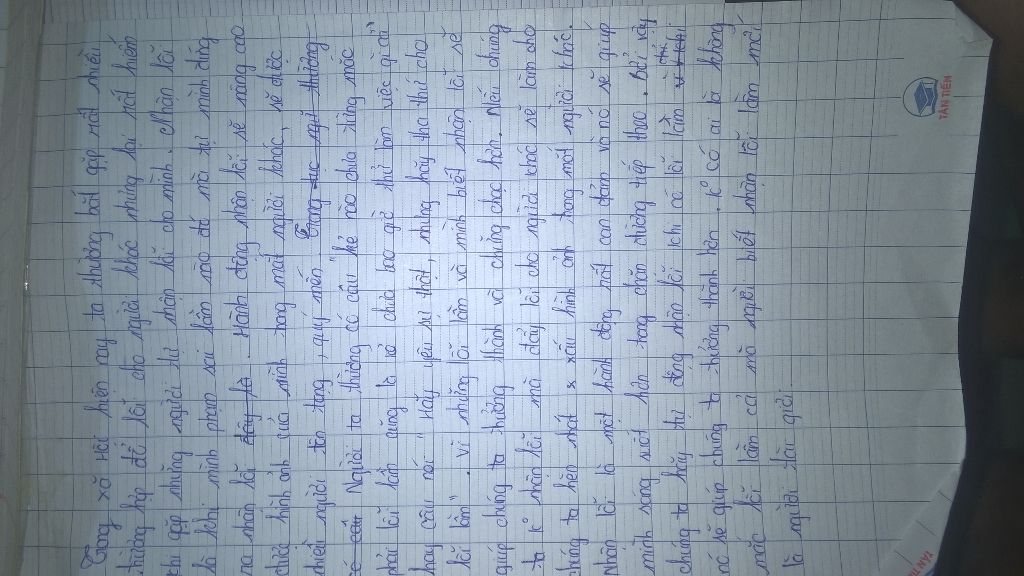 Trong xã hội hiện nay ta thường bắt gặp rất nhiều
trường hợp đổ lỗi cho người khác nhưng lại rất hiếm
khi gặp những người tự nhận lỗi cho mình. Nhận lỗi
là khi mình phạm sai lầm nào đó mà tự mình đứng
ra nhận lỗi đây là. Hành động nhận lỗi sẽ nâng cao
chữa hình ảnh của mình trong mắt người khác, sẽ được
nhiều người tôn trọng, quý mến. Trong tục ngữ thường
có câu Người ta thường có câu "kẻ nào chưa từng mắc
phải lỗi lầm cũng là kẻ chưa bao giờ thử làm việc gì cả"
hay câu nói "Hãy yêu sự thật, nhưng hãy tha thứ cho
lỗi lầm". Vì những lỗi lầm và mình biết nhận lỗi sẽ
giúp chúng ta trưởng thành và chững chạc hơn. Nếu chúng
ta k° nhận lỗi mà đẩy lỗi cho người khác sẽ làm cho
chúng ta hèn nhát xấu hình ảnh trong mắt người khác.
Nhận lỗi là một hành động rất can đảm và nó sẽ giúp
mình sáng suốt hơn trong chặn đường tiếp theo. Bởi vậy
chúng ta hãy tự động nhận lỗi khi có lỗi lầm
nó sẽ giúp chúng ta trưởng thành hơn. K° có ai là không
mắc lỗi lầm cả mà người biết nhận lỗi lầm mới
là người tài giỏi.
TÂN TIẾN